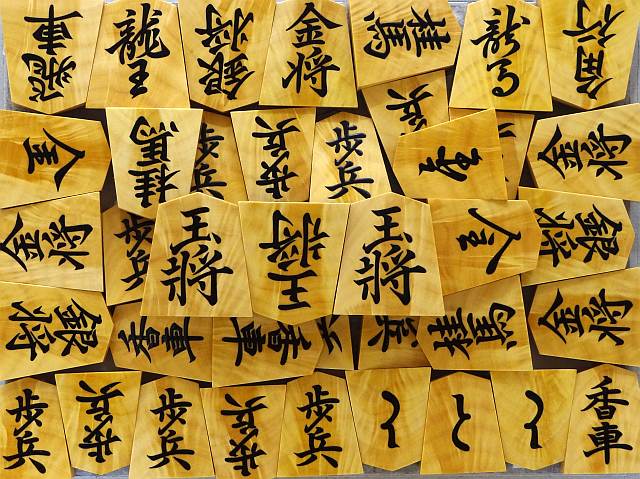 飛車
龍王
銀将
金将
桂馬
龍馬
銀将
全
桂馬
歩兵
歩兵
歩兵
歩兵
金将
金将
歩兵
王将
王将
王将
銀将
銀将
香車
香車
歩兵
桂馬
金将
歩兵
歩兵
歩兵
歩兵
歩兵
と
と
と
香車